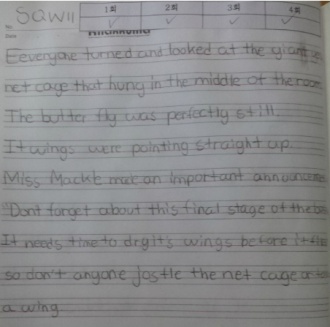 SQW11
1회 2회 3회 4회
No.
Date
Eeveryone turned and looked at the giant
net cage that hung in the middle of the room
The butter fly was perfectly still.
It wings were pointing straight up.
Miss Mackle met an important announceme
"Dont forget about this final stage of the
It needs time to dry it's wings before it
so don't anyone jostle the net cage or
a wing